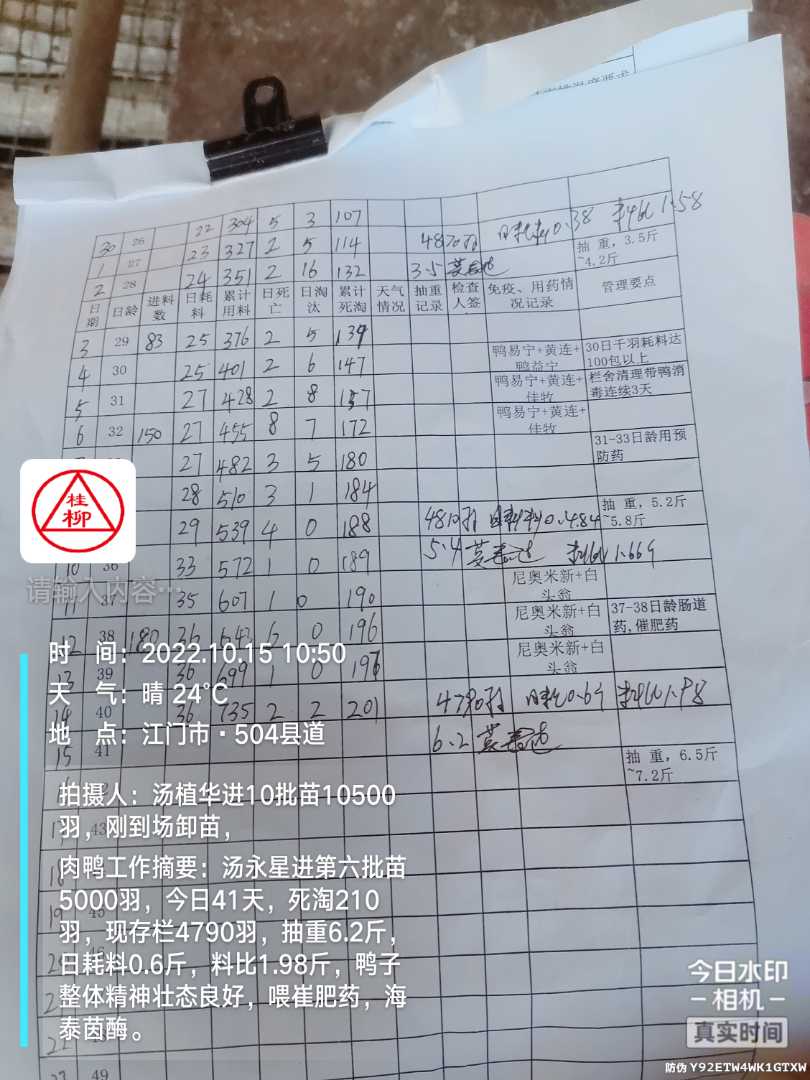 30 26 22 304 5 3 107 日耗料0.38 料比1.58
1 27 23 327 2 5 114 4870羽 抽重，3.5斤
~4.2斤
2 28 24 351 2 16 132 3.5
日期 日龄 进料数 日耗料 累计用料 日死亡 日淘汰 累计死淘 天气情况 抽重记录 检查人签 免疫、用药情况记录 管理要点
3 29 83 25 376 2 5 139
4 30 25 401 2 6 147 鸭易宁+黄连+鸭益宁 30日千羽耗料达100包以上
5 31 27 428 2 8 157 鸭易宁+黄连+佳牧 栏舍清理带鸭消毒连续3天
6 32 150 27 455 8 7 172 鸭易宁+黄连+佳牧
27 482 3 5 180 31-33日龄用预防药
28 510 3 1 184
29 539 4 0 188 4810羽 日耗料0.484 抽重，5.2斤
~5.8斤
10 36 33 572 1 0 189 5.4 料比1.669
11 37 35 607 1 0 190 尼奥米新+白头翁
12 38 180 36 643 6 0 196 尼奥米新+白头翁 37-38日龄肠道药,催肥药
13 39 36 699 1 0 197 尼奥米新+白头翁
14 40 36 735 2 2 201 4790羽 料比1.98
15 41 6.2
抽重，6.5斤
~7.2斤
17 43
18
19 45
46
49
桂柳
请输入内容…
时 间：2022.10.15 10:50
天 气：晴 24℃
地 点：江门市·504县道
拍摄人：汤植华进10批苗10500
羽，刚到场卸苗，
肉鸭工作摘要：汤永星进第六批苗
5000羽，今日41天，死淘210
羽，现存栏4790羽，抽重6.2斤，
日耗料0.6斤，料比1.98斤，鸭子
整体精神壮态良好，喂崔肥药，海
泰茵酶。
今日水印
相机
真实时间
防伪 Y92ETW4WK1GTXW